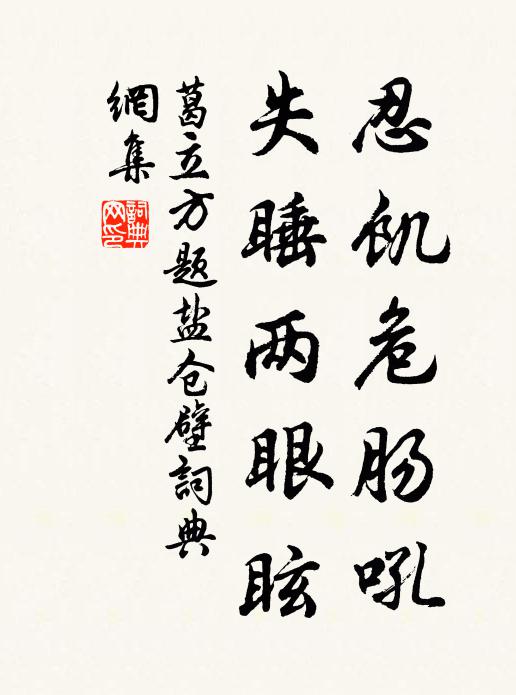 忍飢危肠吼
失睡两眼眩
葛立方题盐仓壁詞典
網集
詞典网印